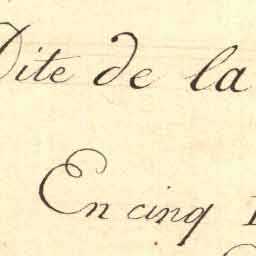 Dite de la
En cinq